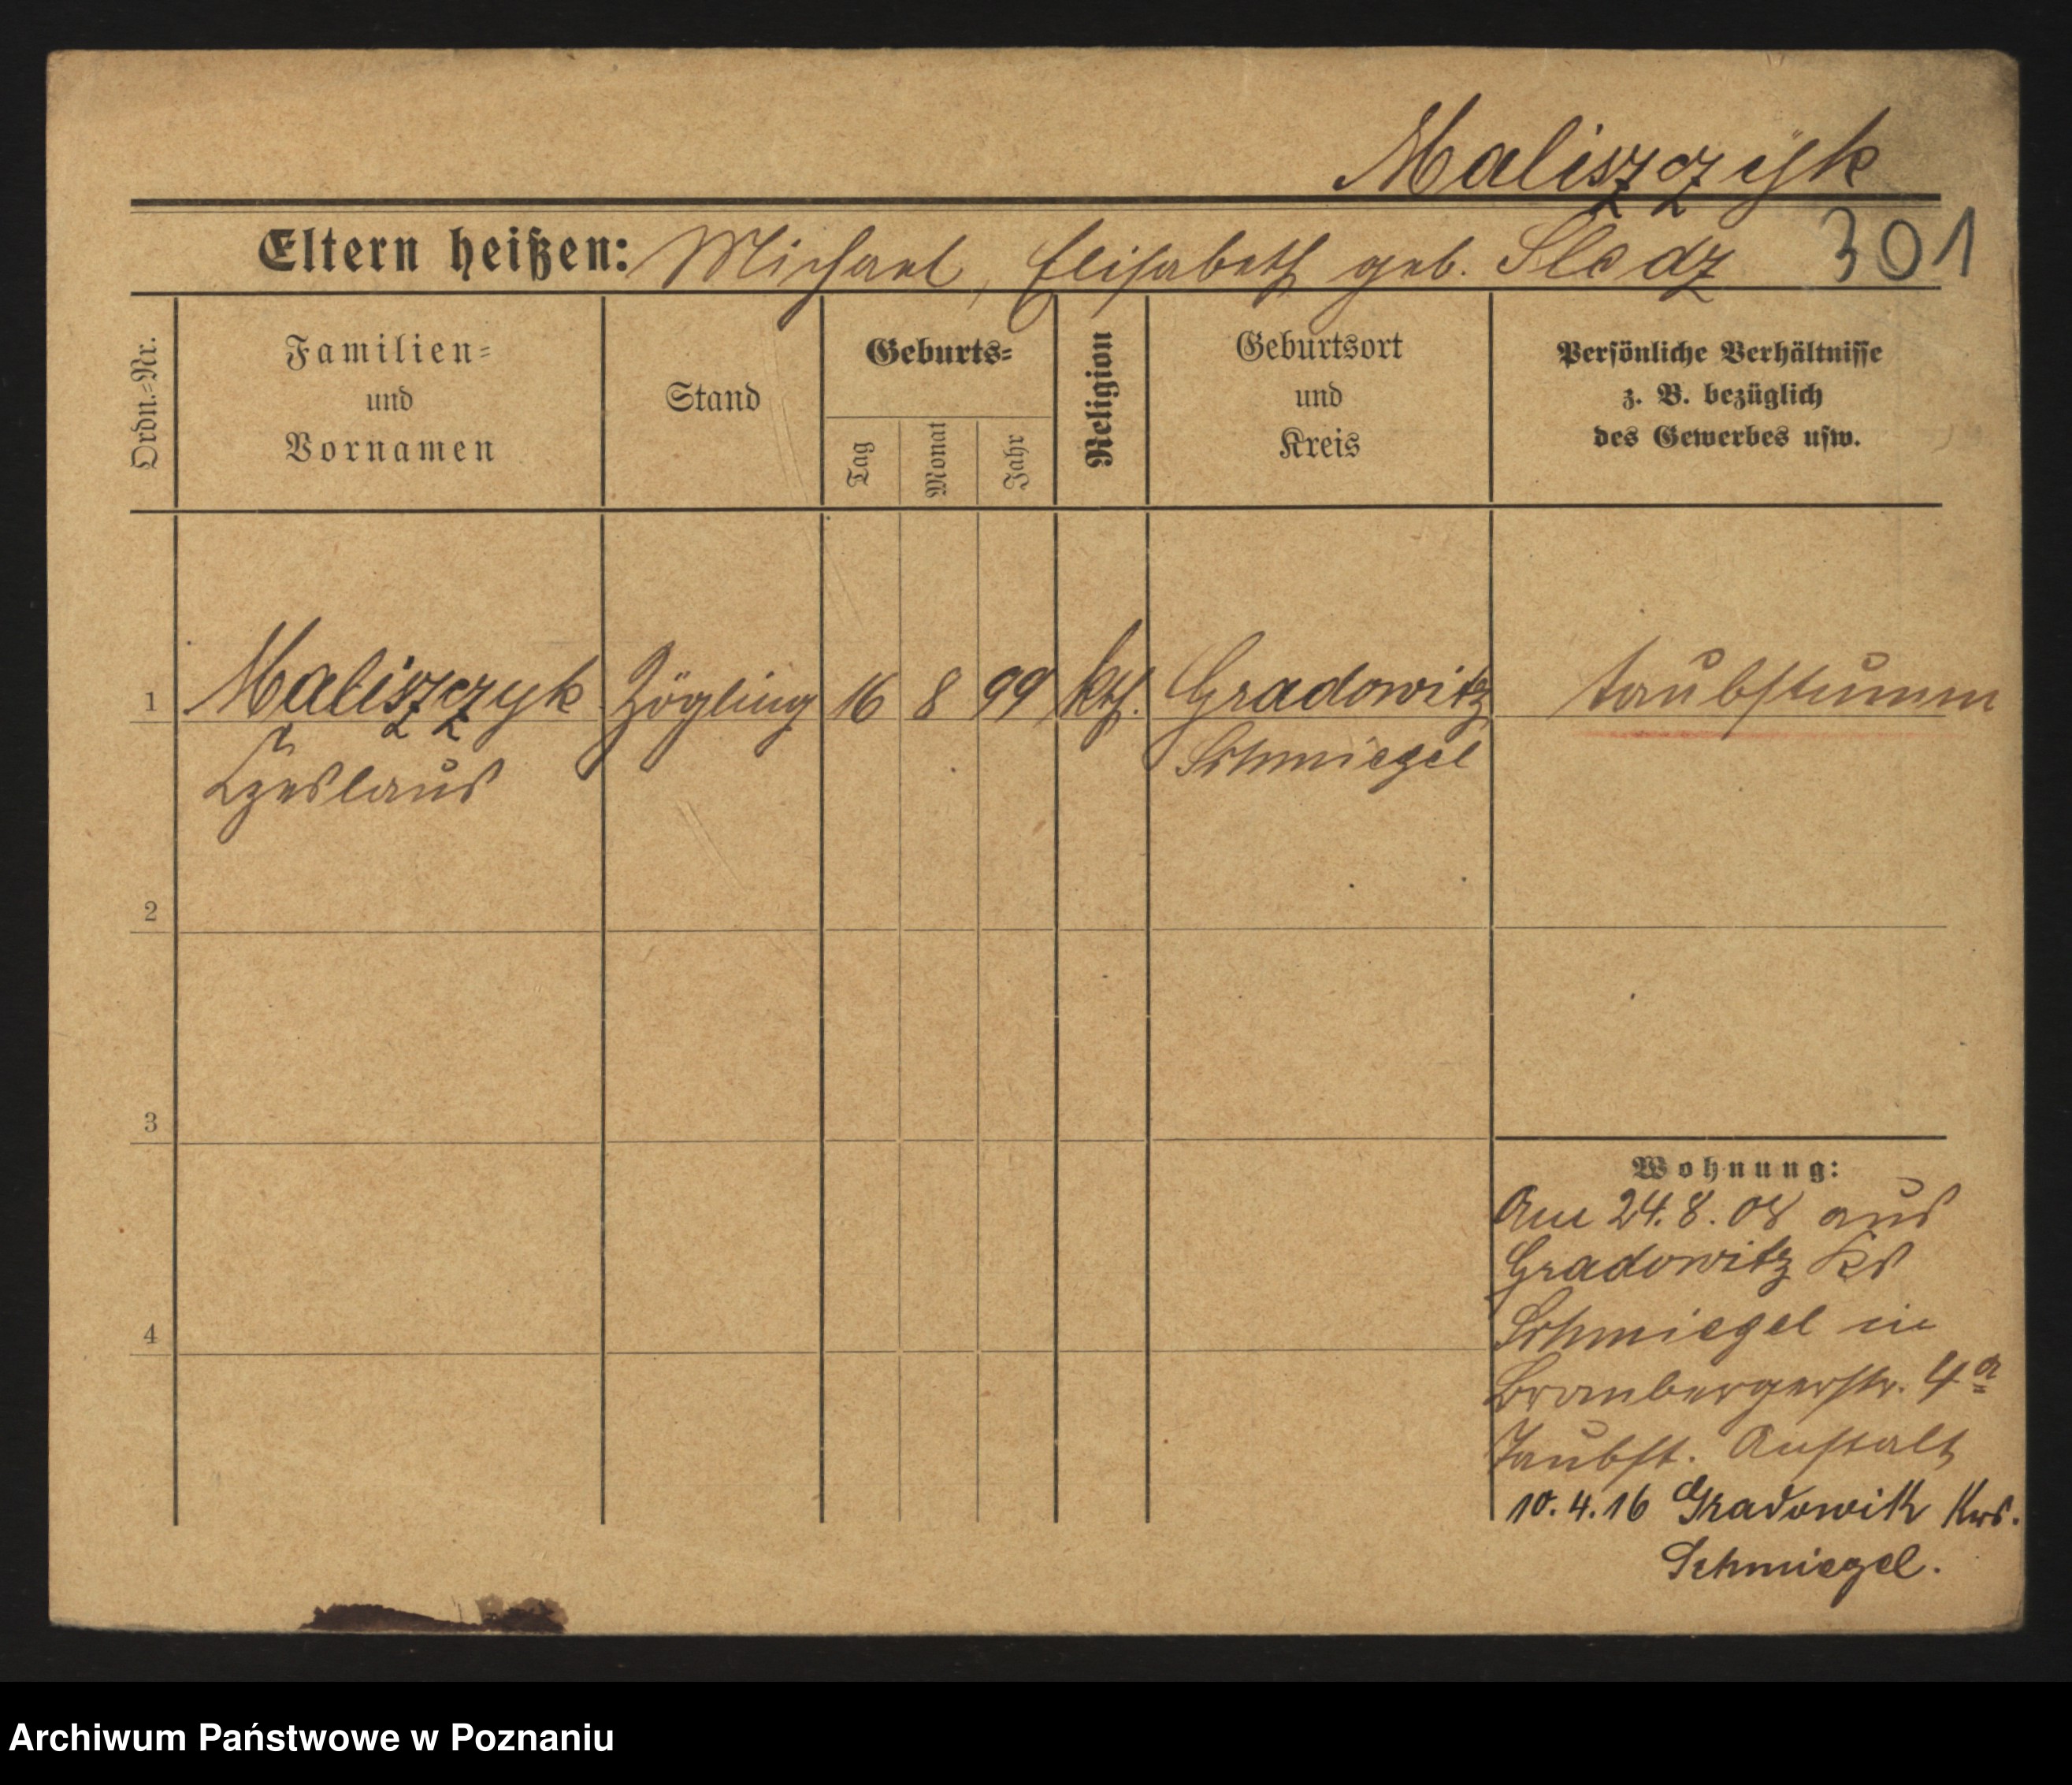 Maliszczyk
Eltern heißen: Michael, Elisabeth geb. Sledz 301
Ordn.=Nr.
Familien=
und
Vornamen
Stand
Geburts=
Tag
Monat
Jahr
Religion
Geburtsort
und
Kreis
Persönliche Verhältnisse
z. B. bezüglich
des Gewerbes usw.
1 Maliszczyk Zögling 16 8 99 kth. Gradowitz taubstumm
Czeslaus Schmiegel
2
3
4
Wohnung:
Am 24.8.08 aus
Gradowitz Krs
Schmiegel in
Brombergerstr. 4a
Taubst. Anstalt
10.4.16 Gradowitz Krs.
Schmiegel.
Archiwum Państwowe w Poznaniu